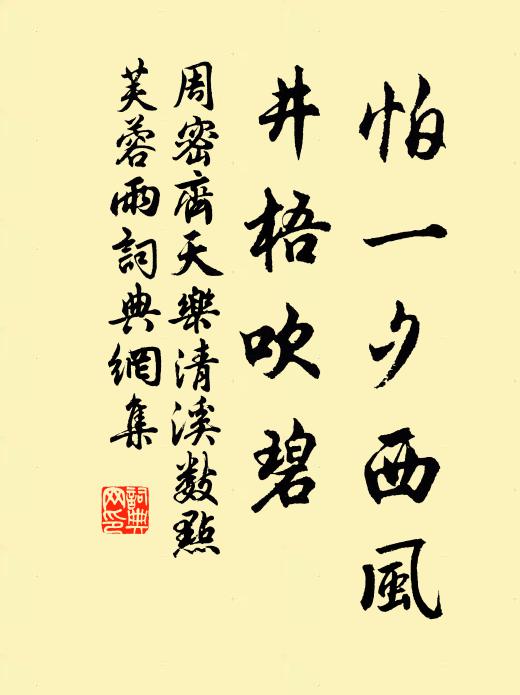 怕一夕西風
井梧吹碧
周密齊天樂清溪數點
芙蓉雨詞典網集
詞典
网印